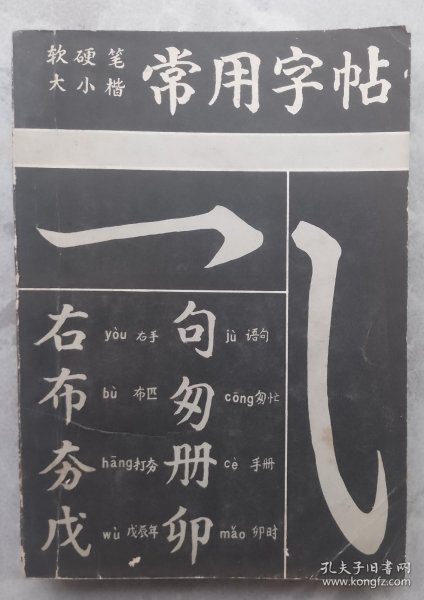 软硬笔
大小楷
常用字帖
右 yòu 右手 句 jù 语句
布 bù 布匹 匆 cōng 匆忙
夯 hāng 打夯 册 cè 手册
戊 wù 戊辰年 卯 mǎo 卯时
孔夫子旧书网
www.kongfz.com